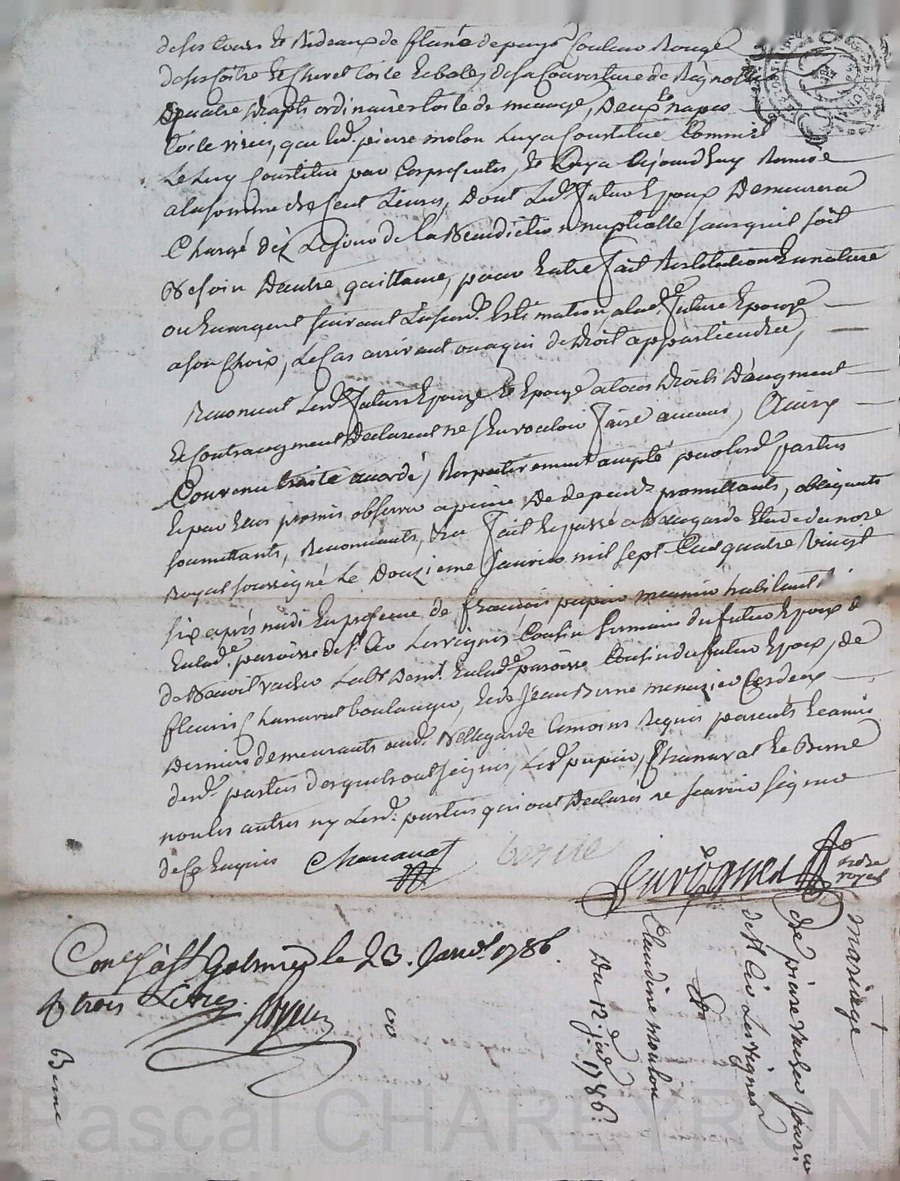 de ses tours et Rideaux de flaine de pays Couleur Rouge
de sa Coitre et Chevet toile et bale, de sa Couverture de
de quatre draps ordinaires toile de menage, deux napes
toile, que led. pierre molon luy a Constitué Comme il
Le luy Constitue par Ces presentes, et luy a aujourd'huy Remise
a la somme de Cent Livres, Dont Led. futur Epoux Demeurera
Chargé dez Le jour de la Benediction nuptialle sans quil soit
Besoin Dautre quittance, pour Entre fait Restitution En nature
ou En argent suivant Lad. Estimation a lad. future Epouze
a son Choix, Le Cas arrivant ou a qui de Droit appartiendra,
Renoncent Led. futurs Epoux et Epouze a tous Droits Daugment
et Contraugment Declarent ne s'En vouloir faire aucuns, Ainsy
Convenu traité accordé, Respectivement accepté par lesd. parties
Et par Elles promis observer a peine De depends promettants, obligeants
soumettants, Renonceants, fait Et passé a Bellegarde Etude du nore
Royal soussigné Le Douzieme Janvier mil sept Cent quatre Vingt
six après midi En presence de francois pupier meunier habitant
En lad. paroisse de St. Cir Les vignes Cousin Germain du futur Epoux de
Benoit vacher En lad. paroisse Cousin du futur Epoux, de
fleury Chanavat boulanger, et de Jean Berne menuzier Ces deux
Derniers demeurants aud. Bellegarde temoins Requis parents et amis
desd. parties desquels ont signés, Led. pupier, Chanavat et Berne
non les autres ny Lesd. parties qui ont Declarés ne scavoir signer
de Ce Enquis Chanavat berne
nore royal
Con. à St Galmier le 23. Janv. 1786.
R trois Livres
Berne
mariage
de pierre vacher Jour.
de St. Cir Les vignes
Et
Claudine moulon
Du 12. janv. 1786.
Pascal CHAREYRON